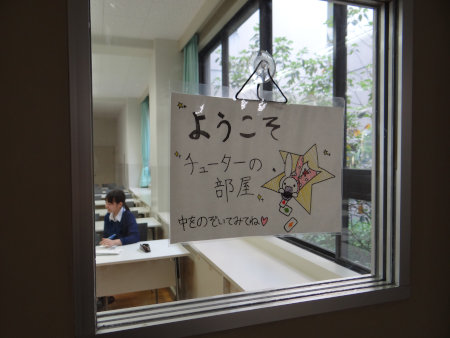 ようこそ
チューターの
部屋
中をのぞいてみてね♡